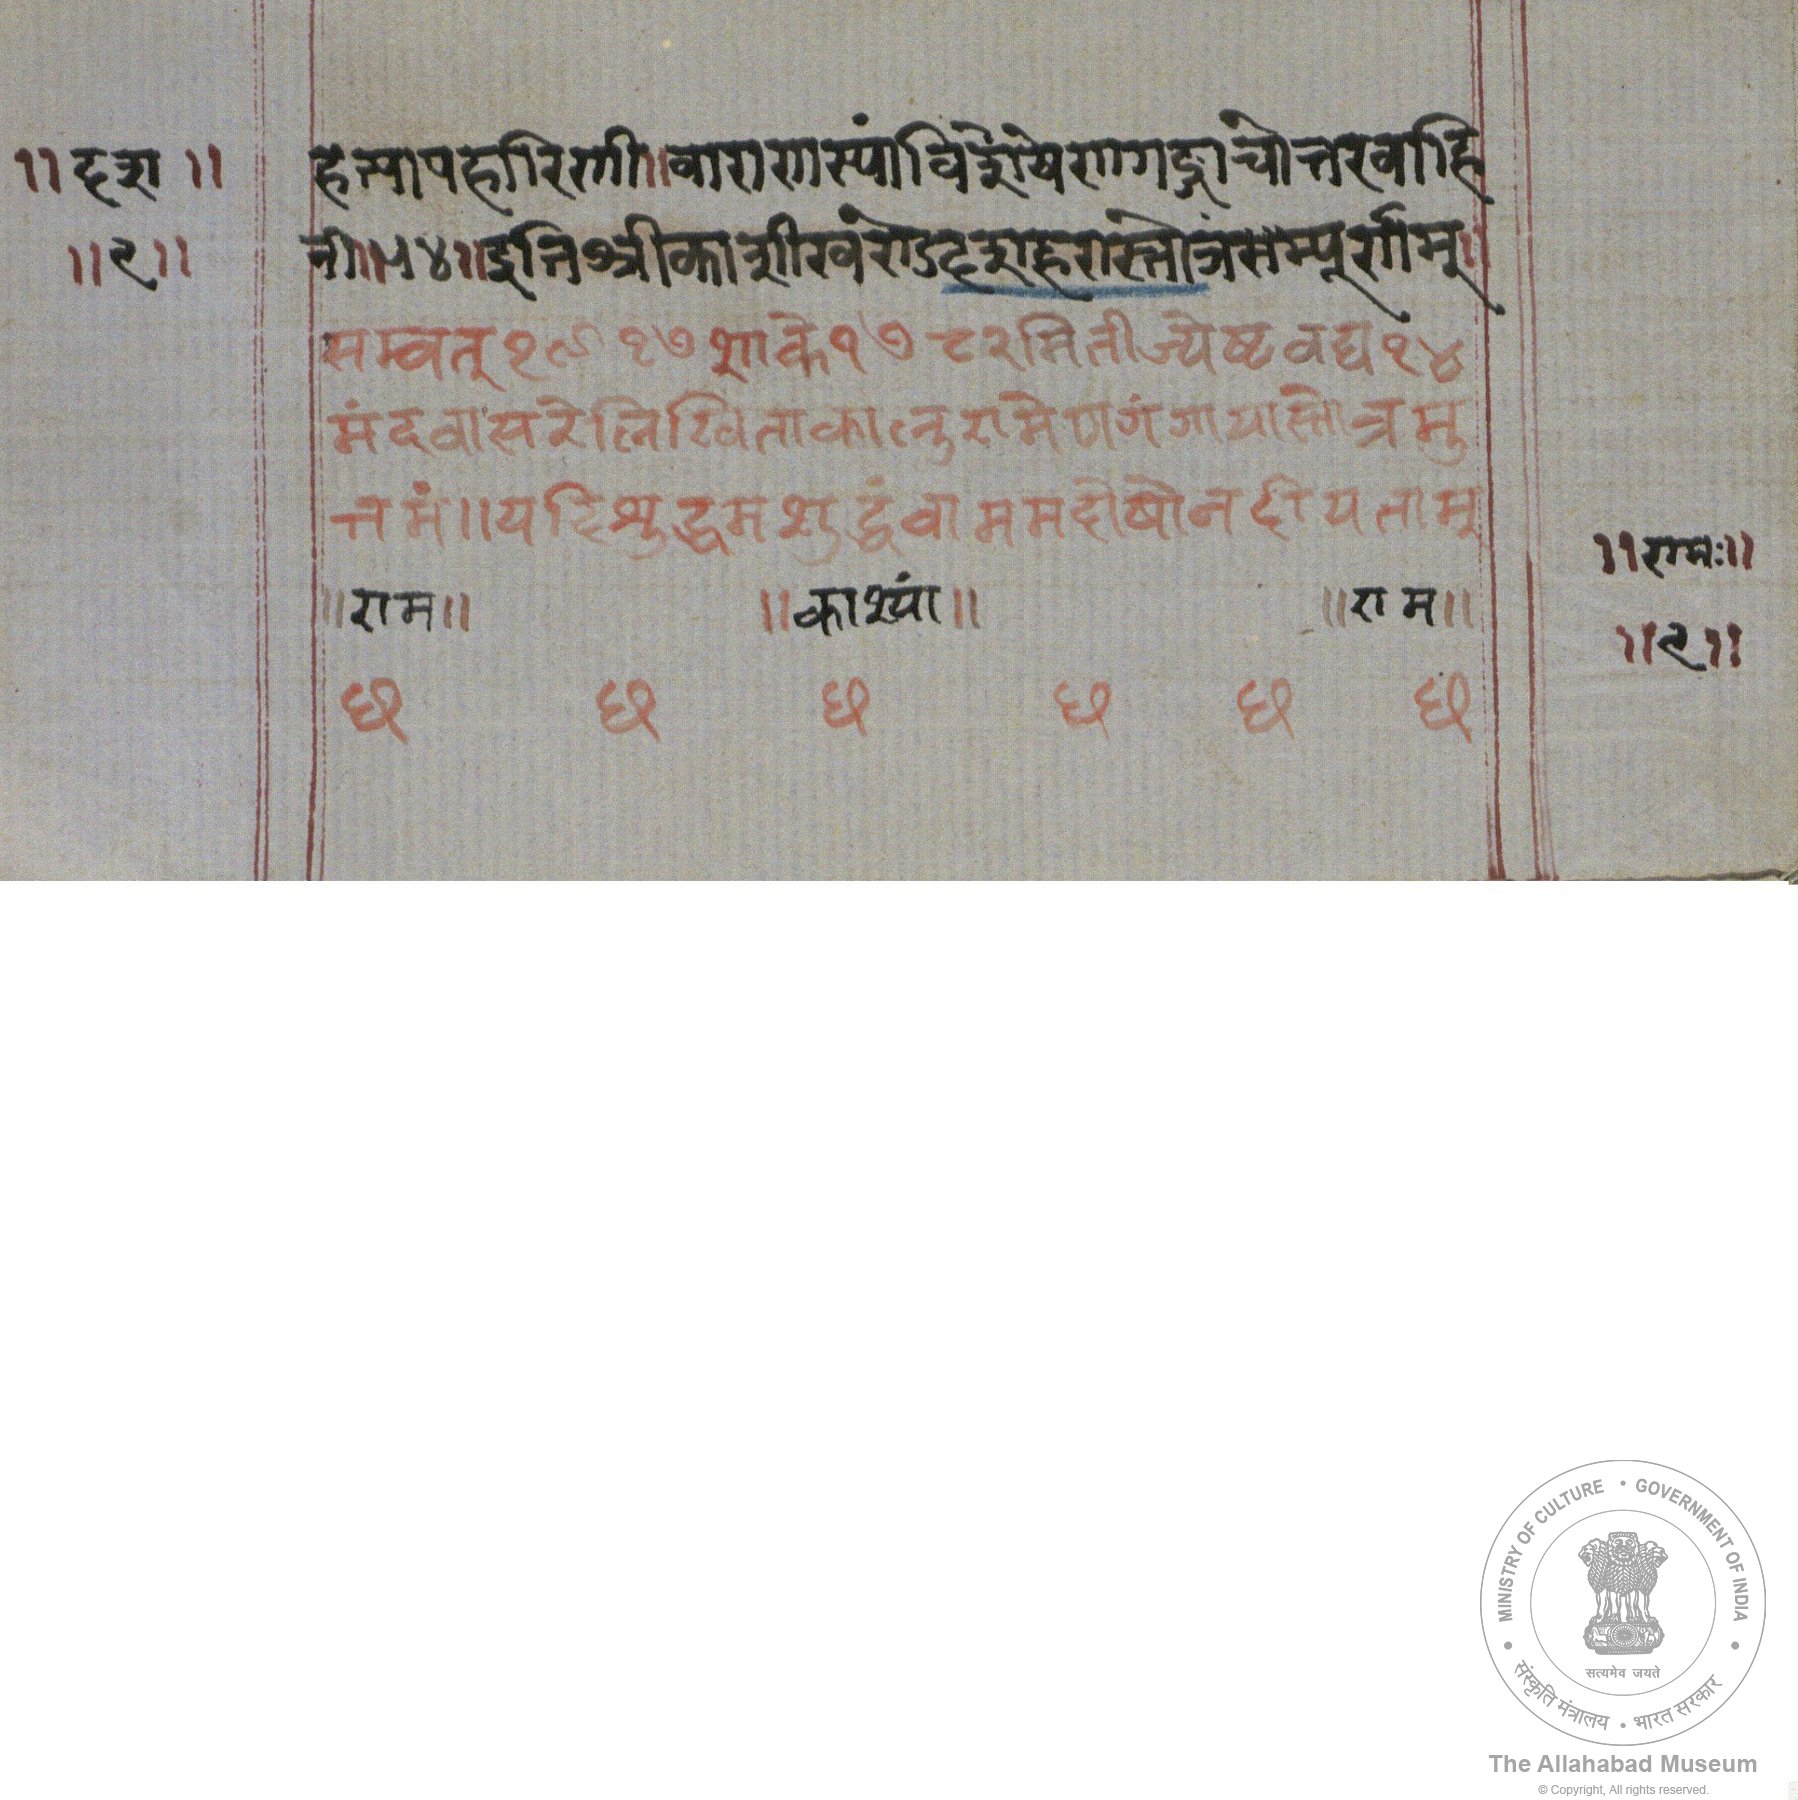 ॥दश॥
॥९॥
हत्पापहारिणी॥वाराणस्यांविशेषेणगङ्गाचोत्तरवाहि
नी॥५४॥इतिश्रीकाशीखंण्डेदशहरास्तोत्रंसम्पूर्णम्॥
सम्वत्१९१७शाके१७८२मितीज्येष्टवद्य१४
मंदवासरेलिखिता गंगायास्तोत्रमु
त्तमं॥यदिशुद्धमशुद्धंवाममदोषोनदीयताम्
॥राम॥ ॥काश्यां॥ ॥राम॥
छ छ छ छ छ छ
॥रामः॥
॥९॥
MINISTRY OF CULTURE • GOVERNMENT OF INDIA
सत्यमेव जयते
संस्कृति मंत्रालय • भारत सरकार
The Allahabad Museum
© Copyright, All rights reserved.